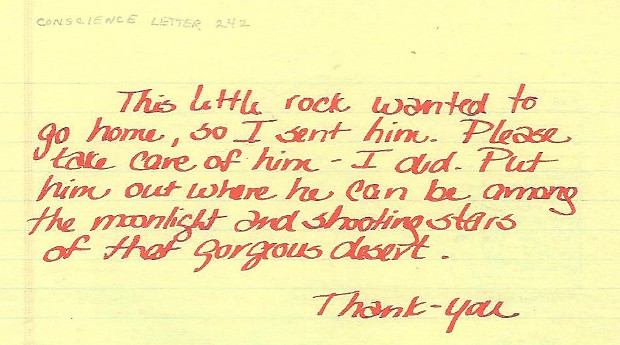 CONSCIENCE LETTER 242
This little rock wanted to
go home, so I sent him. Please
take care of him - I did. Put
him out where he can be among
the moonlight and shooting stars
of that gorgeous desert.
Thank-you